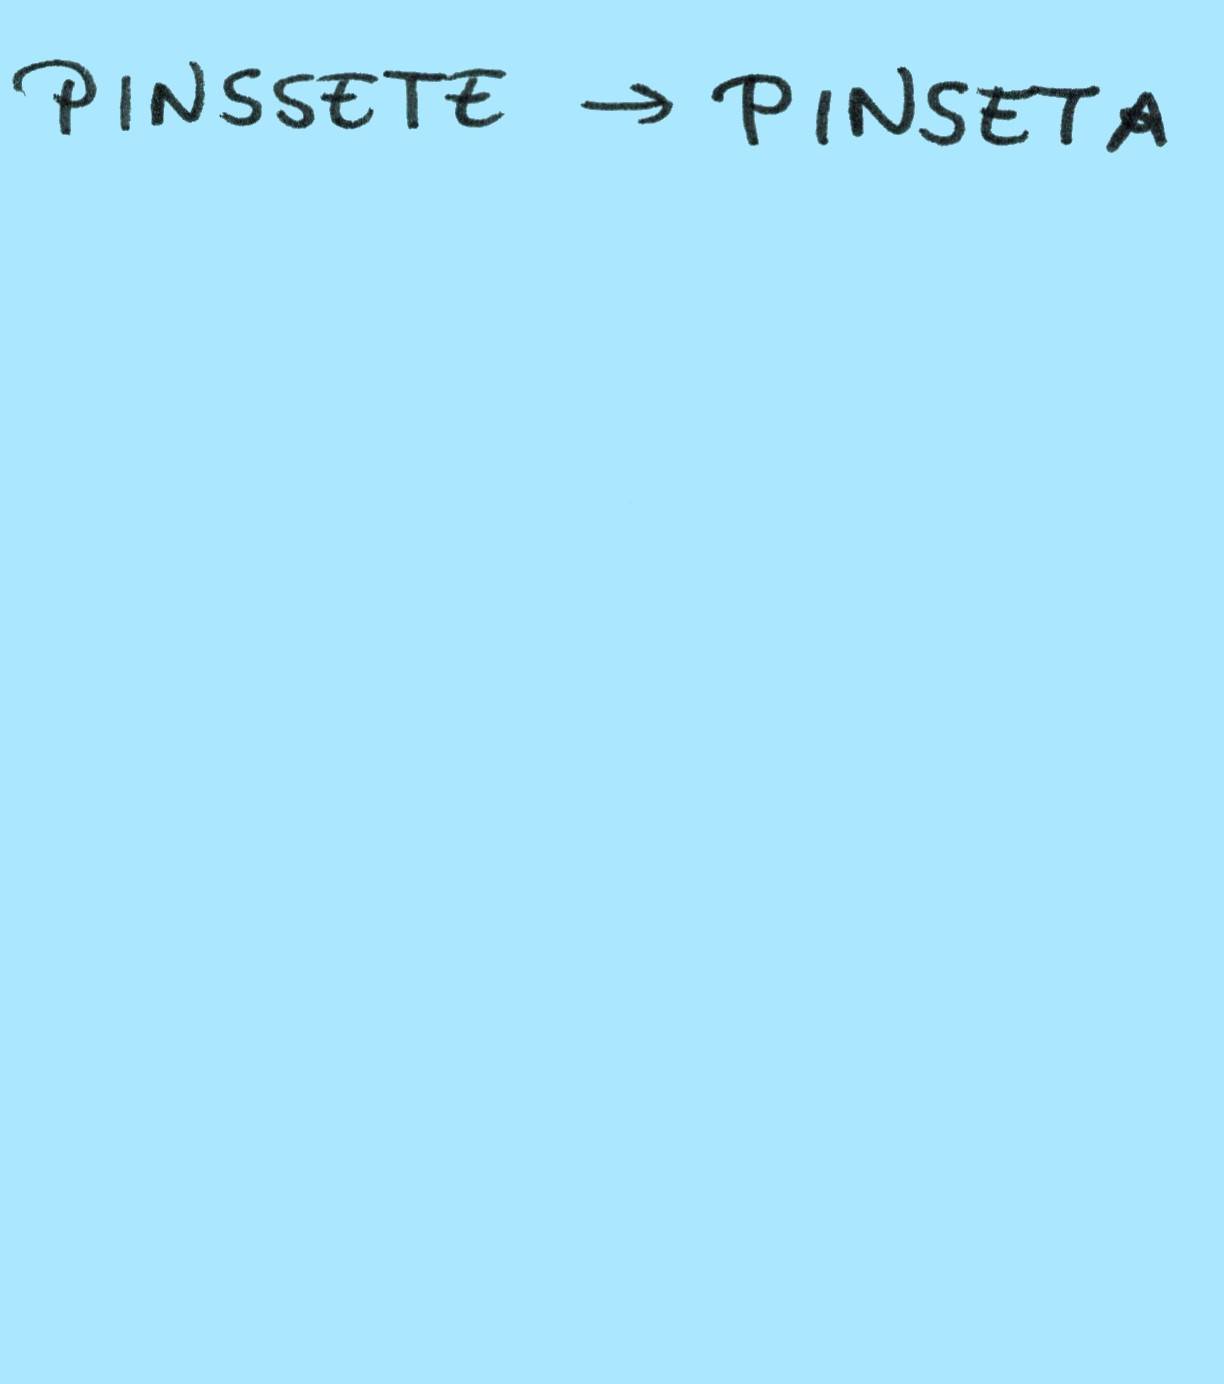 PINSSETE → PINSETA